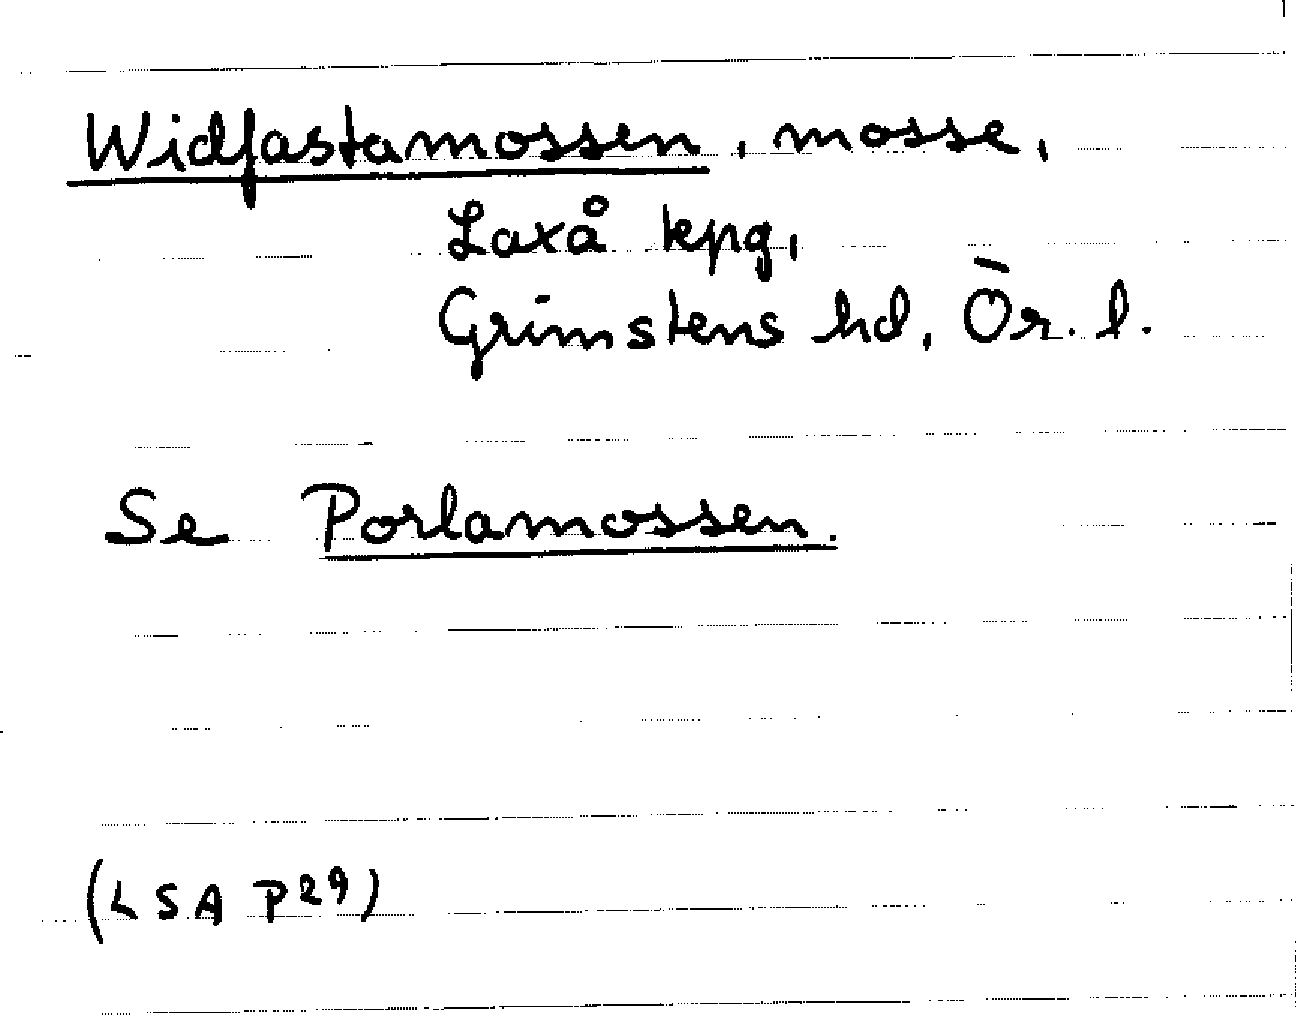 Widfastamossen, mosse,
Laxå kpg,
Grimstens hd, Ör. l.
Se Porlamossen.
(LSA P29)